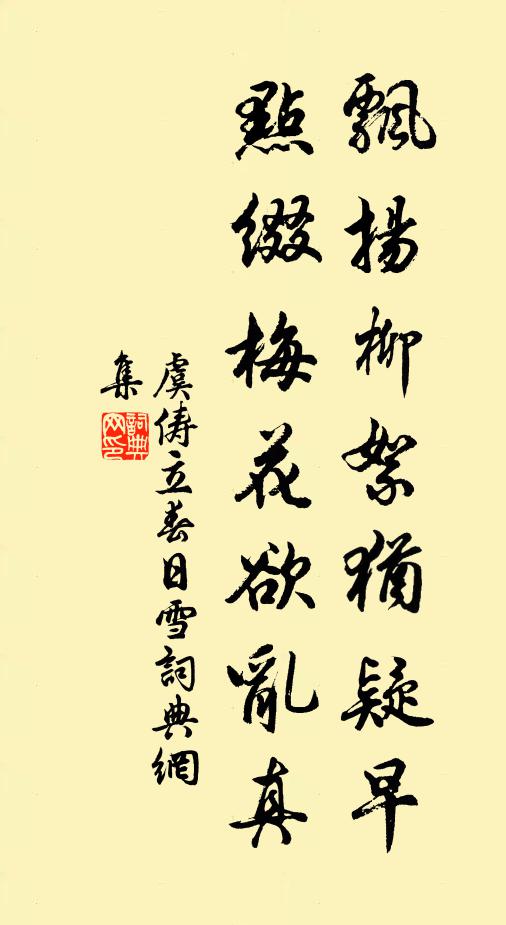 飄揚柳絮猶疑早
點綴梅花欲亂真
虞儔立春日雪詞典網
集
詞典
网印